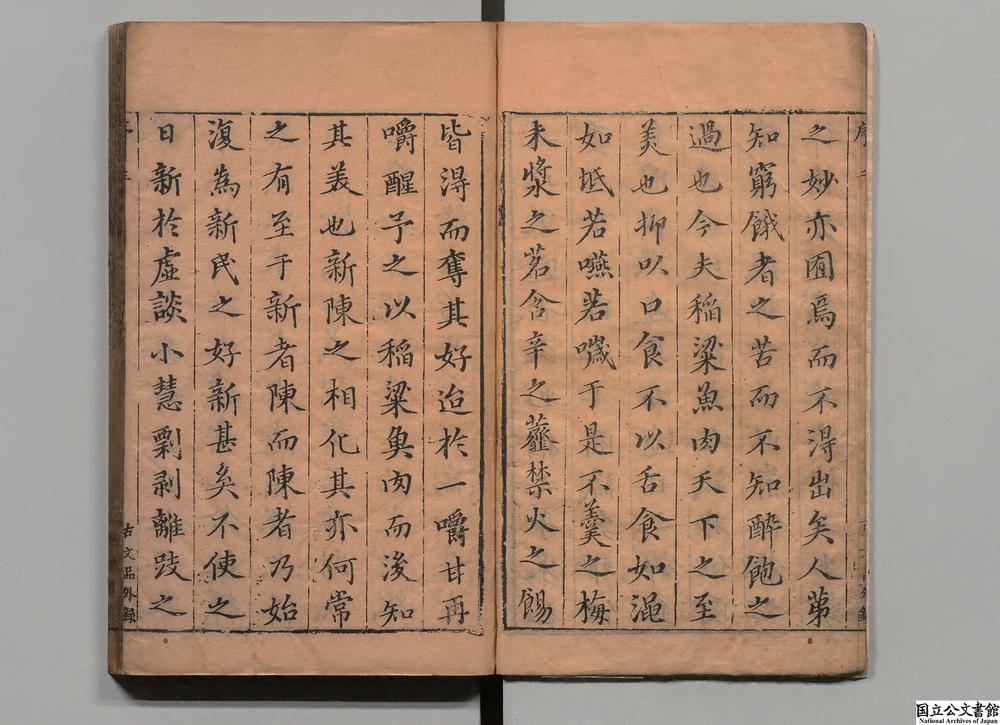 序
之妙亦囿焉而不淂出矣人苐
知窮餓者之苦而不知醉飽之
過也今夫稲粱魚肉天下之至
羙也抑以口食不以舌食如澠
如坻若嚥若噦于是不羹之梅
未漿之茗含辛之虀禁火之餳
皆淂而奪其好迨於一嚼甘再
嚼醒予之以稲粱魚肉而浚知
其羙也新陳之相化其亦何常
之有至于新者陳而陳者乃始
復為新民之好新甚矣不使之
日新於虛談小慧剽剥離跂之
古文品外録
国立公文書館
National Archives of Japan